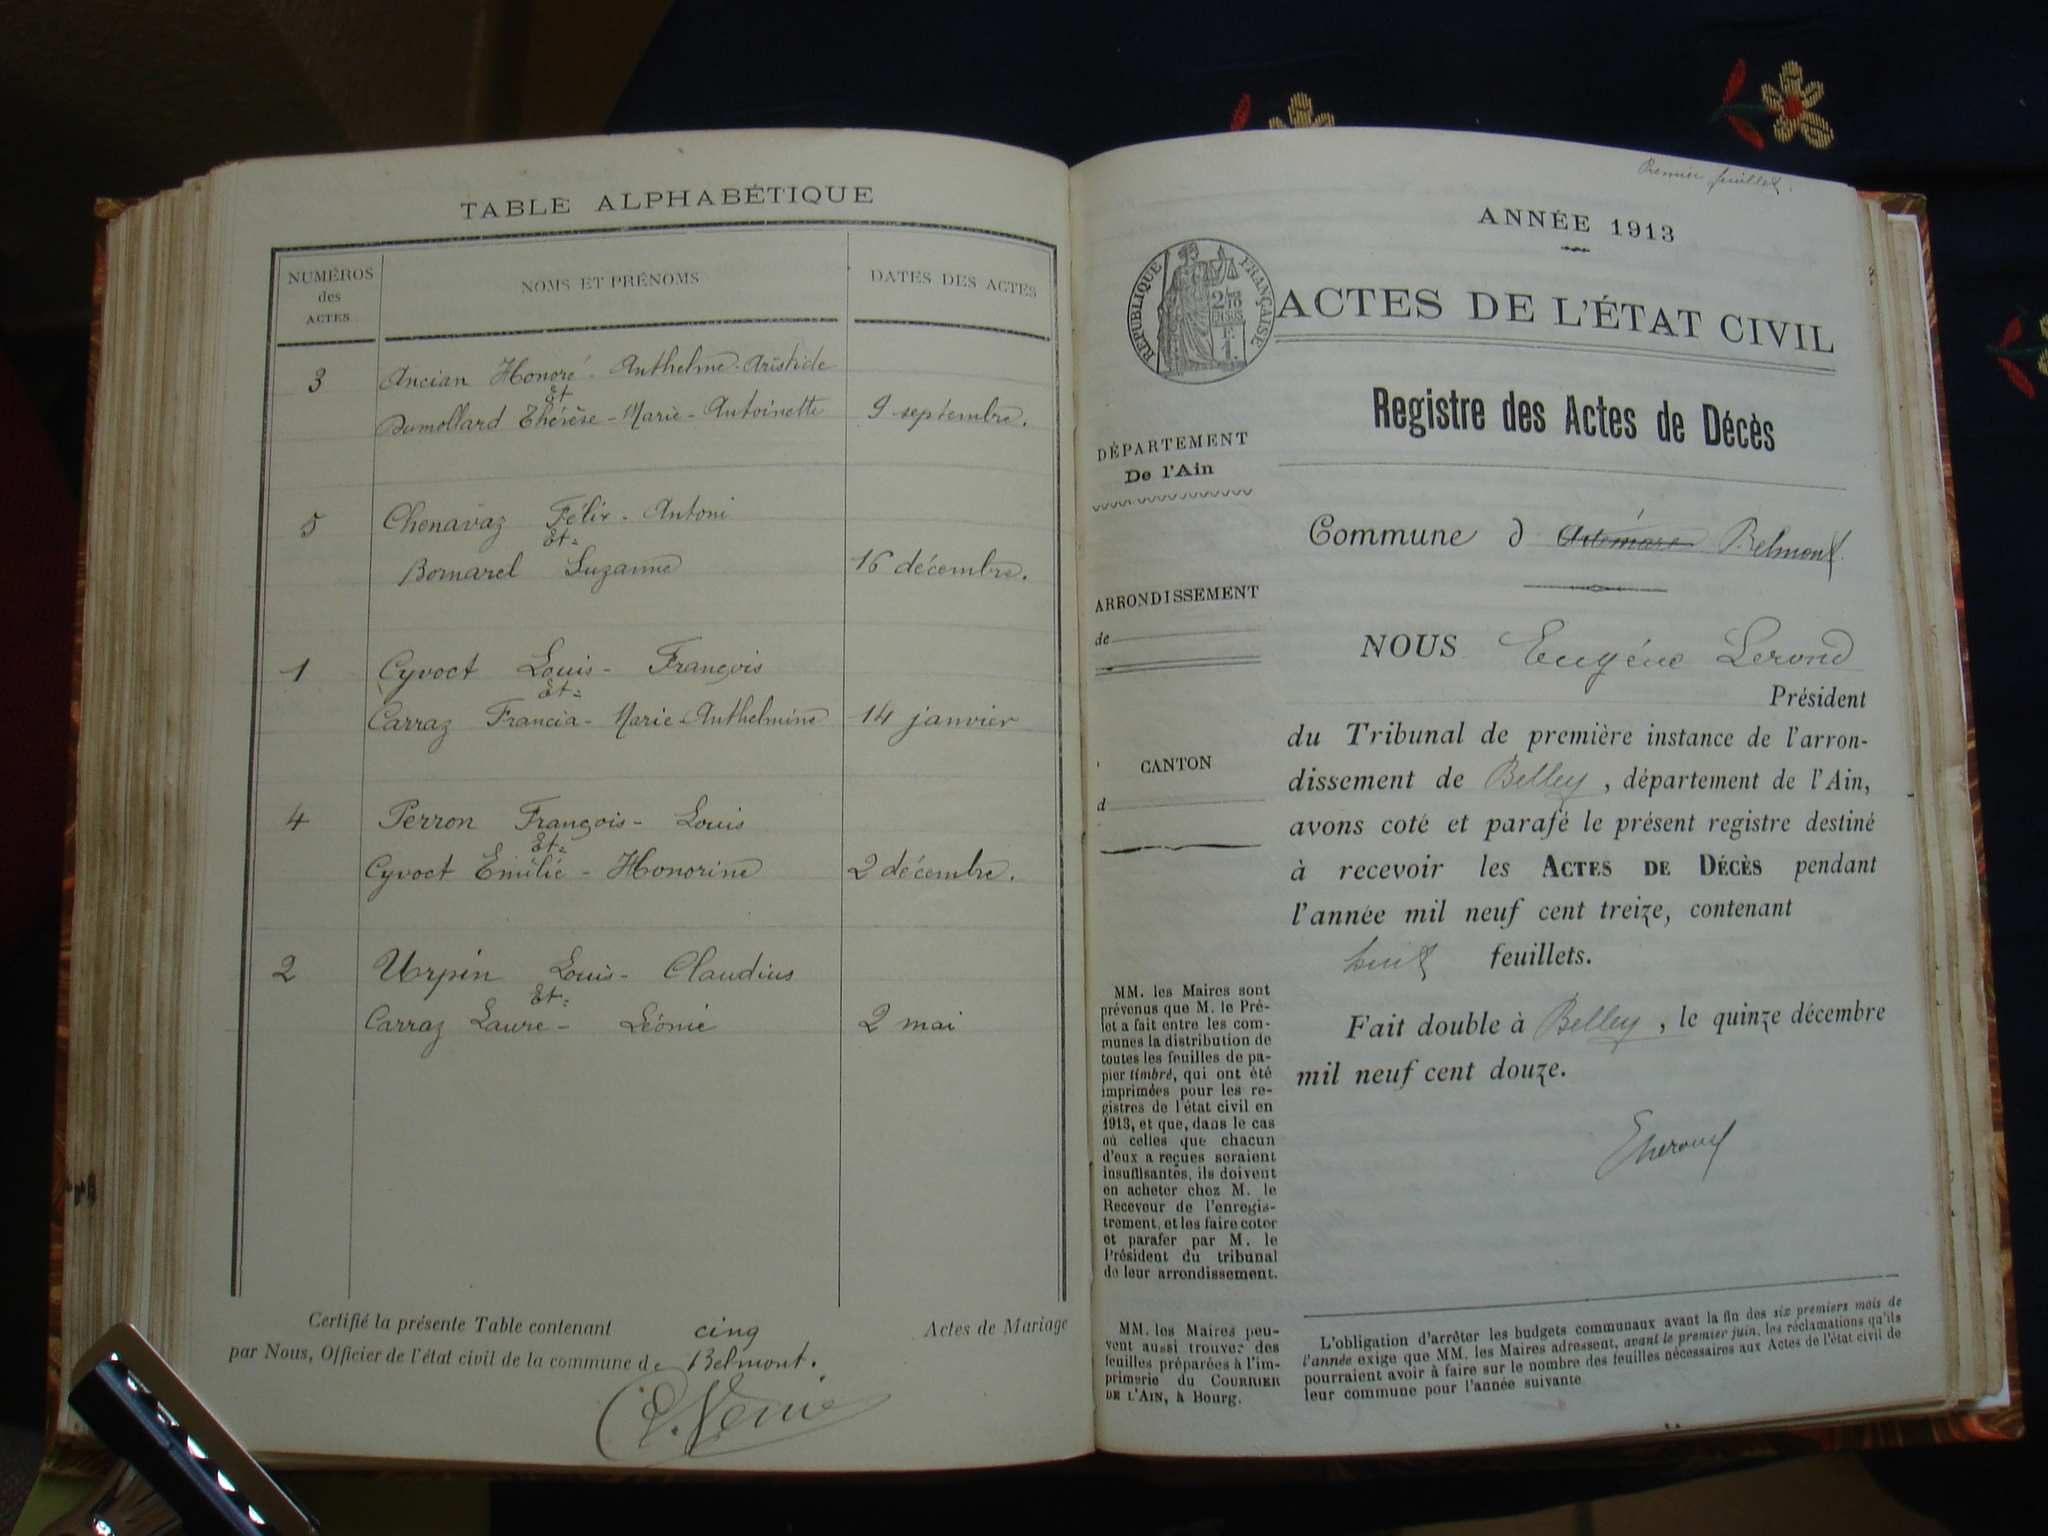 TABLE ALPHABÉTIQUE
NUMÉROS
des
ACTES
NOMS ET PRÉNOMS
DATES DES ACTES
3 Ancian Honoré - Anthelme - Aristide
Et
Dumollard Thérèse - Marie - Antoinette 9 septembre.
5 Chenavaz Félix - Antoni
Et=
Bornarel Suzanne 16 décembre.
1 Cyvoct Louis - François
Et=
Carraz Francia - Marie - Anthelmine 14 janvier
4 Perron François - Louis
Et=
Cyvoct Emilie - Honorine 2 décembre.
2 Urpin Louis - Claudius
Et=
Carraz Laure - Léonie 2 mai
Certifié la présente Table contenant cinq Actes de Mariage
par Nous, Officier de l'état civil de la commune de Belmont.
Premier feuillet.
ANNÉE 1913
RÉPUBLIQUE FRANÇAISE
2 10
EN SUS
F.
1.
ACTES DE L'ÉTAT CIVIL
Registre des Actes de Décès
DÉPARTEMENT
De l'Ain
Commune d Artemare Belmont.
ARRONDISSEMENT
de
CANTON
d
NOUS Eugène Lerond
Président
du Tribunal de première instance de l'arron-
dissement de Belley, département de l'Ain,
avons coté et parafé le présent registre destiné
à recevoir les ACTES DE DÉCÈS pendant
l'année mil neuf cent treize, contenant
huit feuillets.
Fait double à Belley, le quinze décembre
mil neuf cent douze.
MM. les Maires sont
prévenus que M. le Pré-
fet a fait entre les com-
munes la distribution de
toutes les feuilles de pa-
pier timbré, qui ont été
imprimées pour les re-
gistres de l'état civil en
1913, et que, dans le cas
où celles que chacun
d'eux a reçues seraient
insuffisantes, ils doivent
en acheter chez M. le
Receveur de l'enregis-
trement, et les faire coter
et parafer par M. le
Président du tribunal
de leur arrondissement.
MM. les Maires peu-
vent aussi trouver des
feuilles préparées à l'im-
primerie du COURRIER
DE L'AIN, à Bourg.
L'obligation d'arrêter les budgets communaux avant la fin des six premiers mois de
l'année exige que MM. les Maires adressent, avant le premier juin, les réclamations qu'ils
pourraient avoir à faire sur le nombre des feuilles nécessaires aux Actes de l'état civil de
leur commune pour l'année suivante